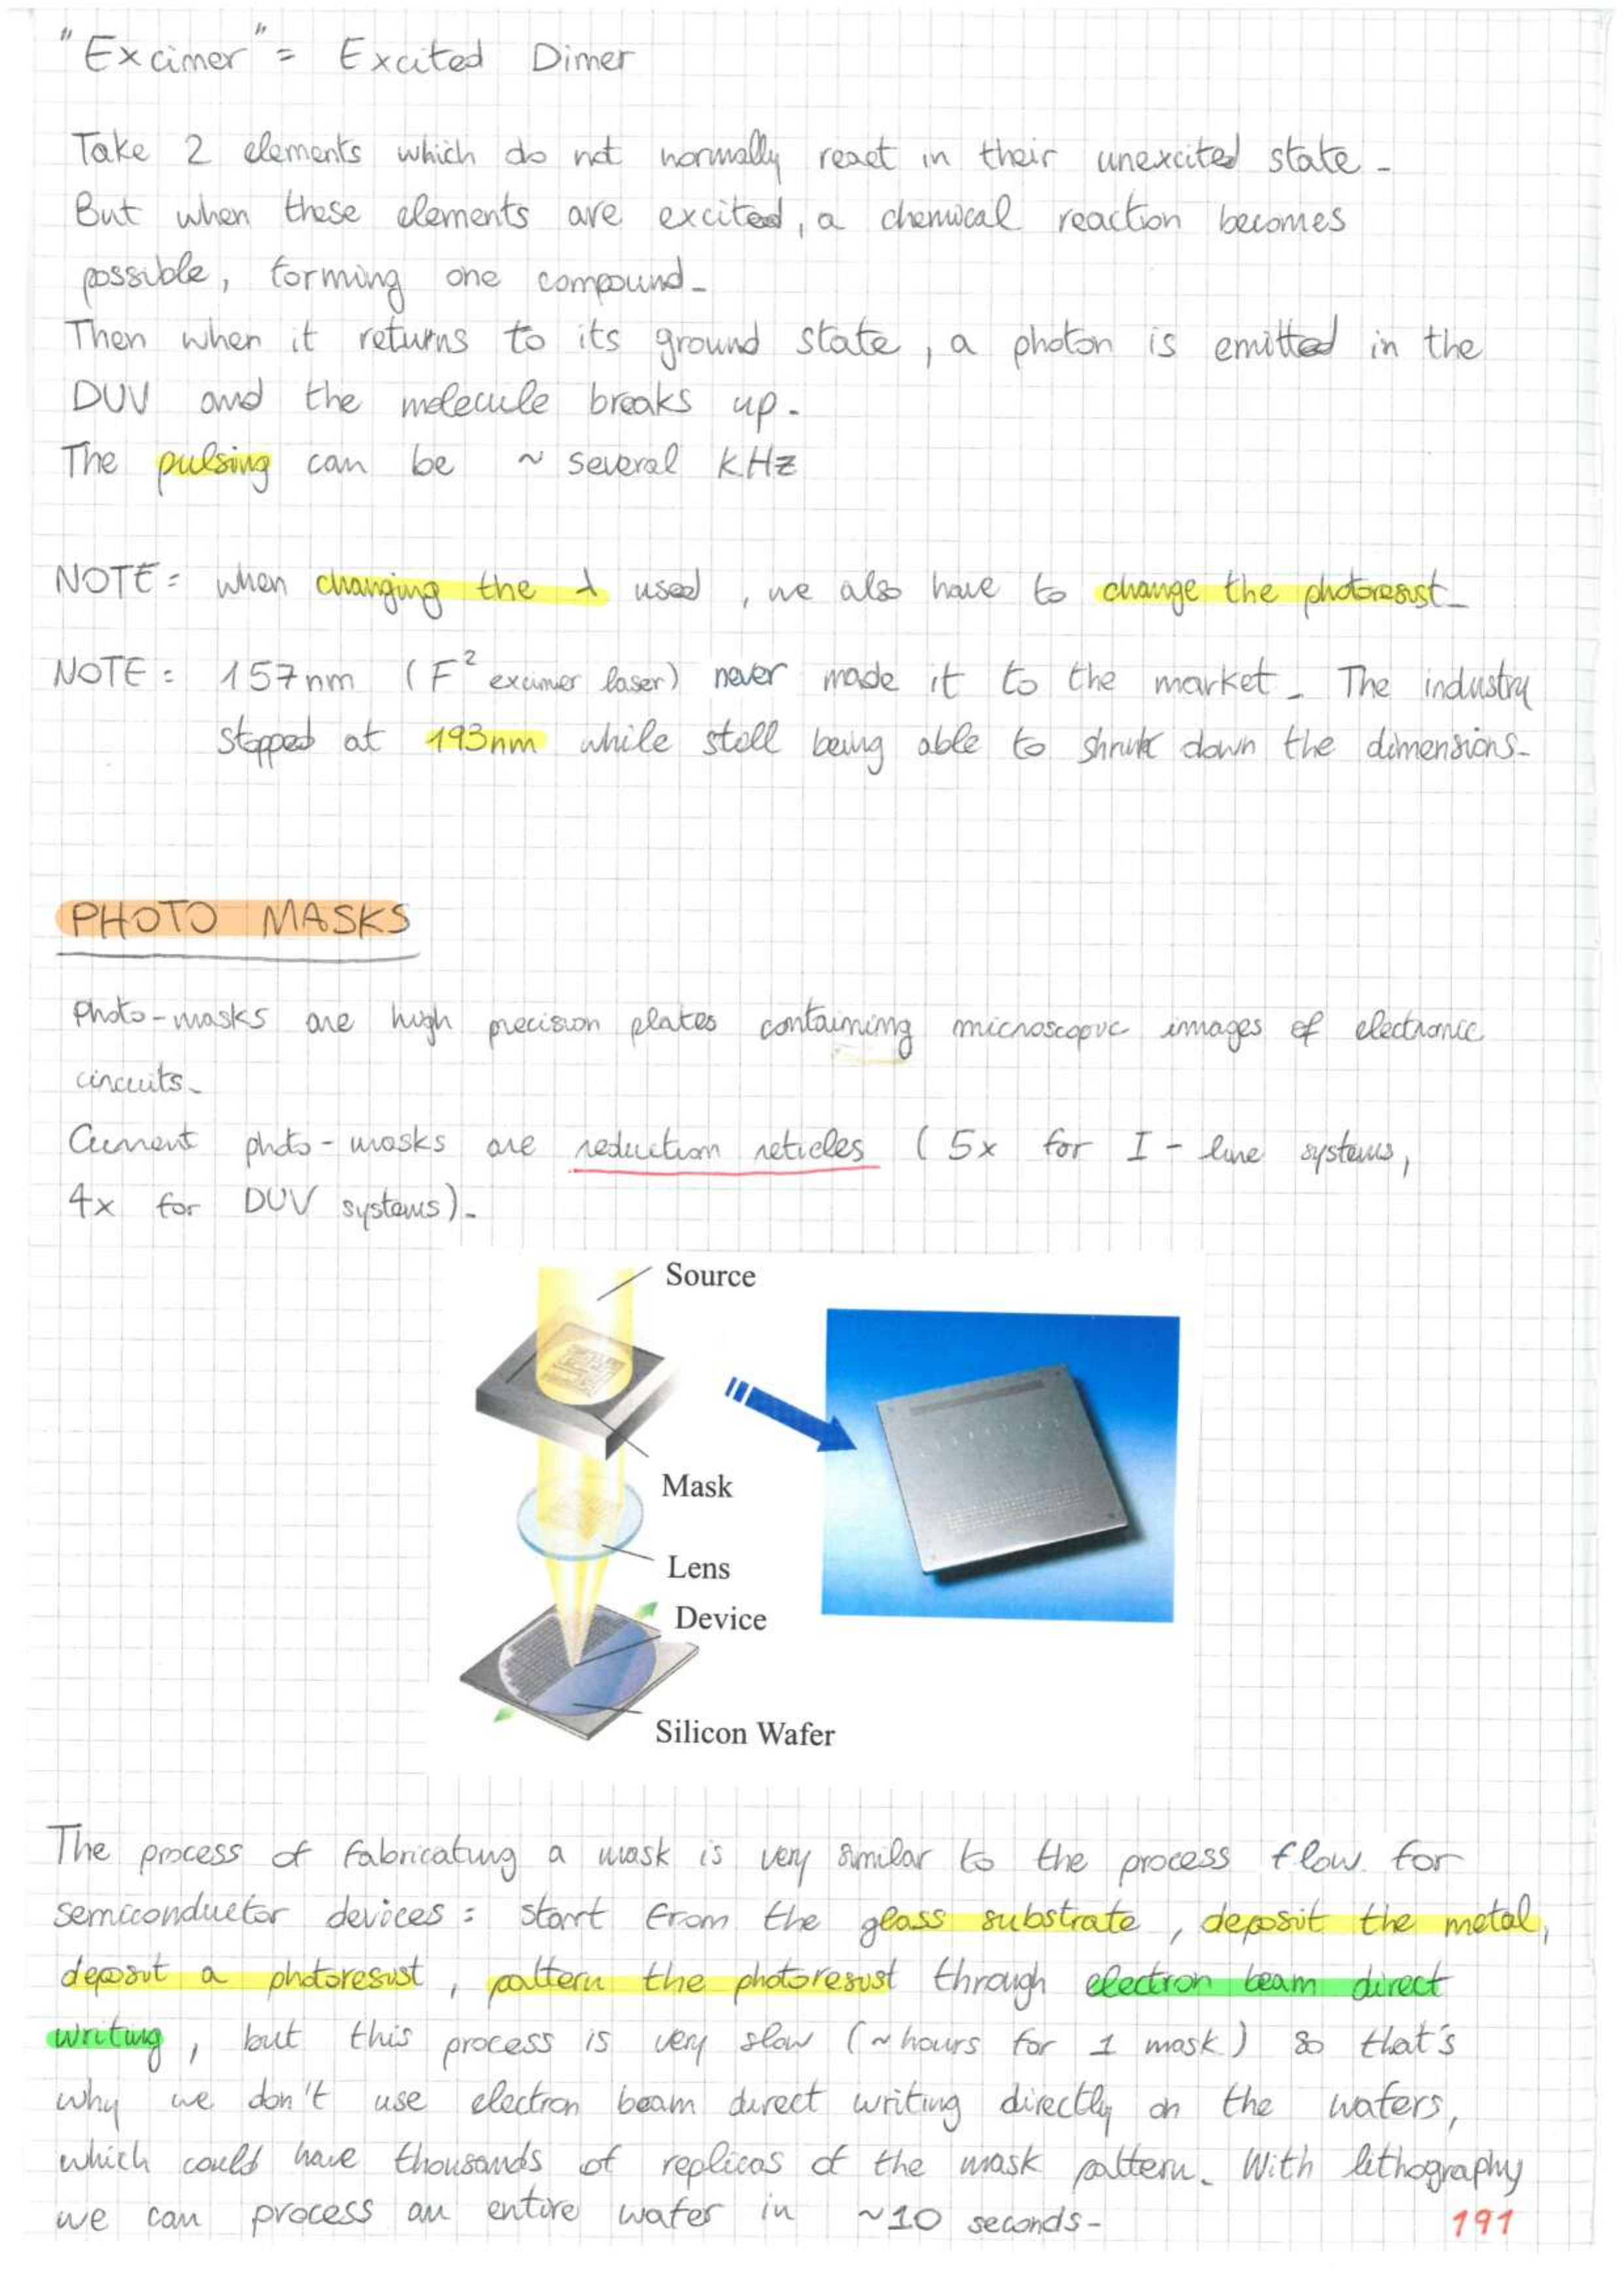 "Excimer" = Excited Dimer
Take 2 elements which do not normally react in their unexcited state.
But when these elements are excited, a chemical reaction becomes
possible, forming one compound.
Then when it returns to its ground state, a photon is emitted in the
DUV and the molecule breaks up.
The pulsing can be ~ several KHz
NOTE: when changing the λ used, we also have to change the photoresist.
NOTE: 157nm (F² excimer laser) never made it to the market. The industry
stopped at 193nm while still being able to shrink down the dimensions.
PHOTO MASKS
Photo-masks are high precision plates containing microscopic images of electronic
circuits.
Current photo-masks are reduction reticles (5x for I-line systems,
4x for DUV systems).
Source
Mask
Lens
Device
Silicon Wafer
The process of fabricating a mask is very similar to the process flow for
semiconductor devices: start from the glass substrate, deposit the metal,
deposit a photoresist, pattern the photoresist through electron beam direct
writing, but this process is very slow (~hours for 1 mask) so that's
why we don't use electron beam direct writing directly on the wafers,
which could have thousands of replicas of the mask pattern. With lithography
we can process an entire wafer in ~10 seconds.
191